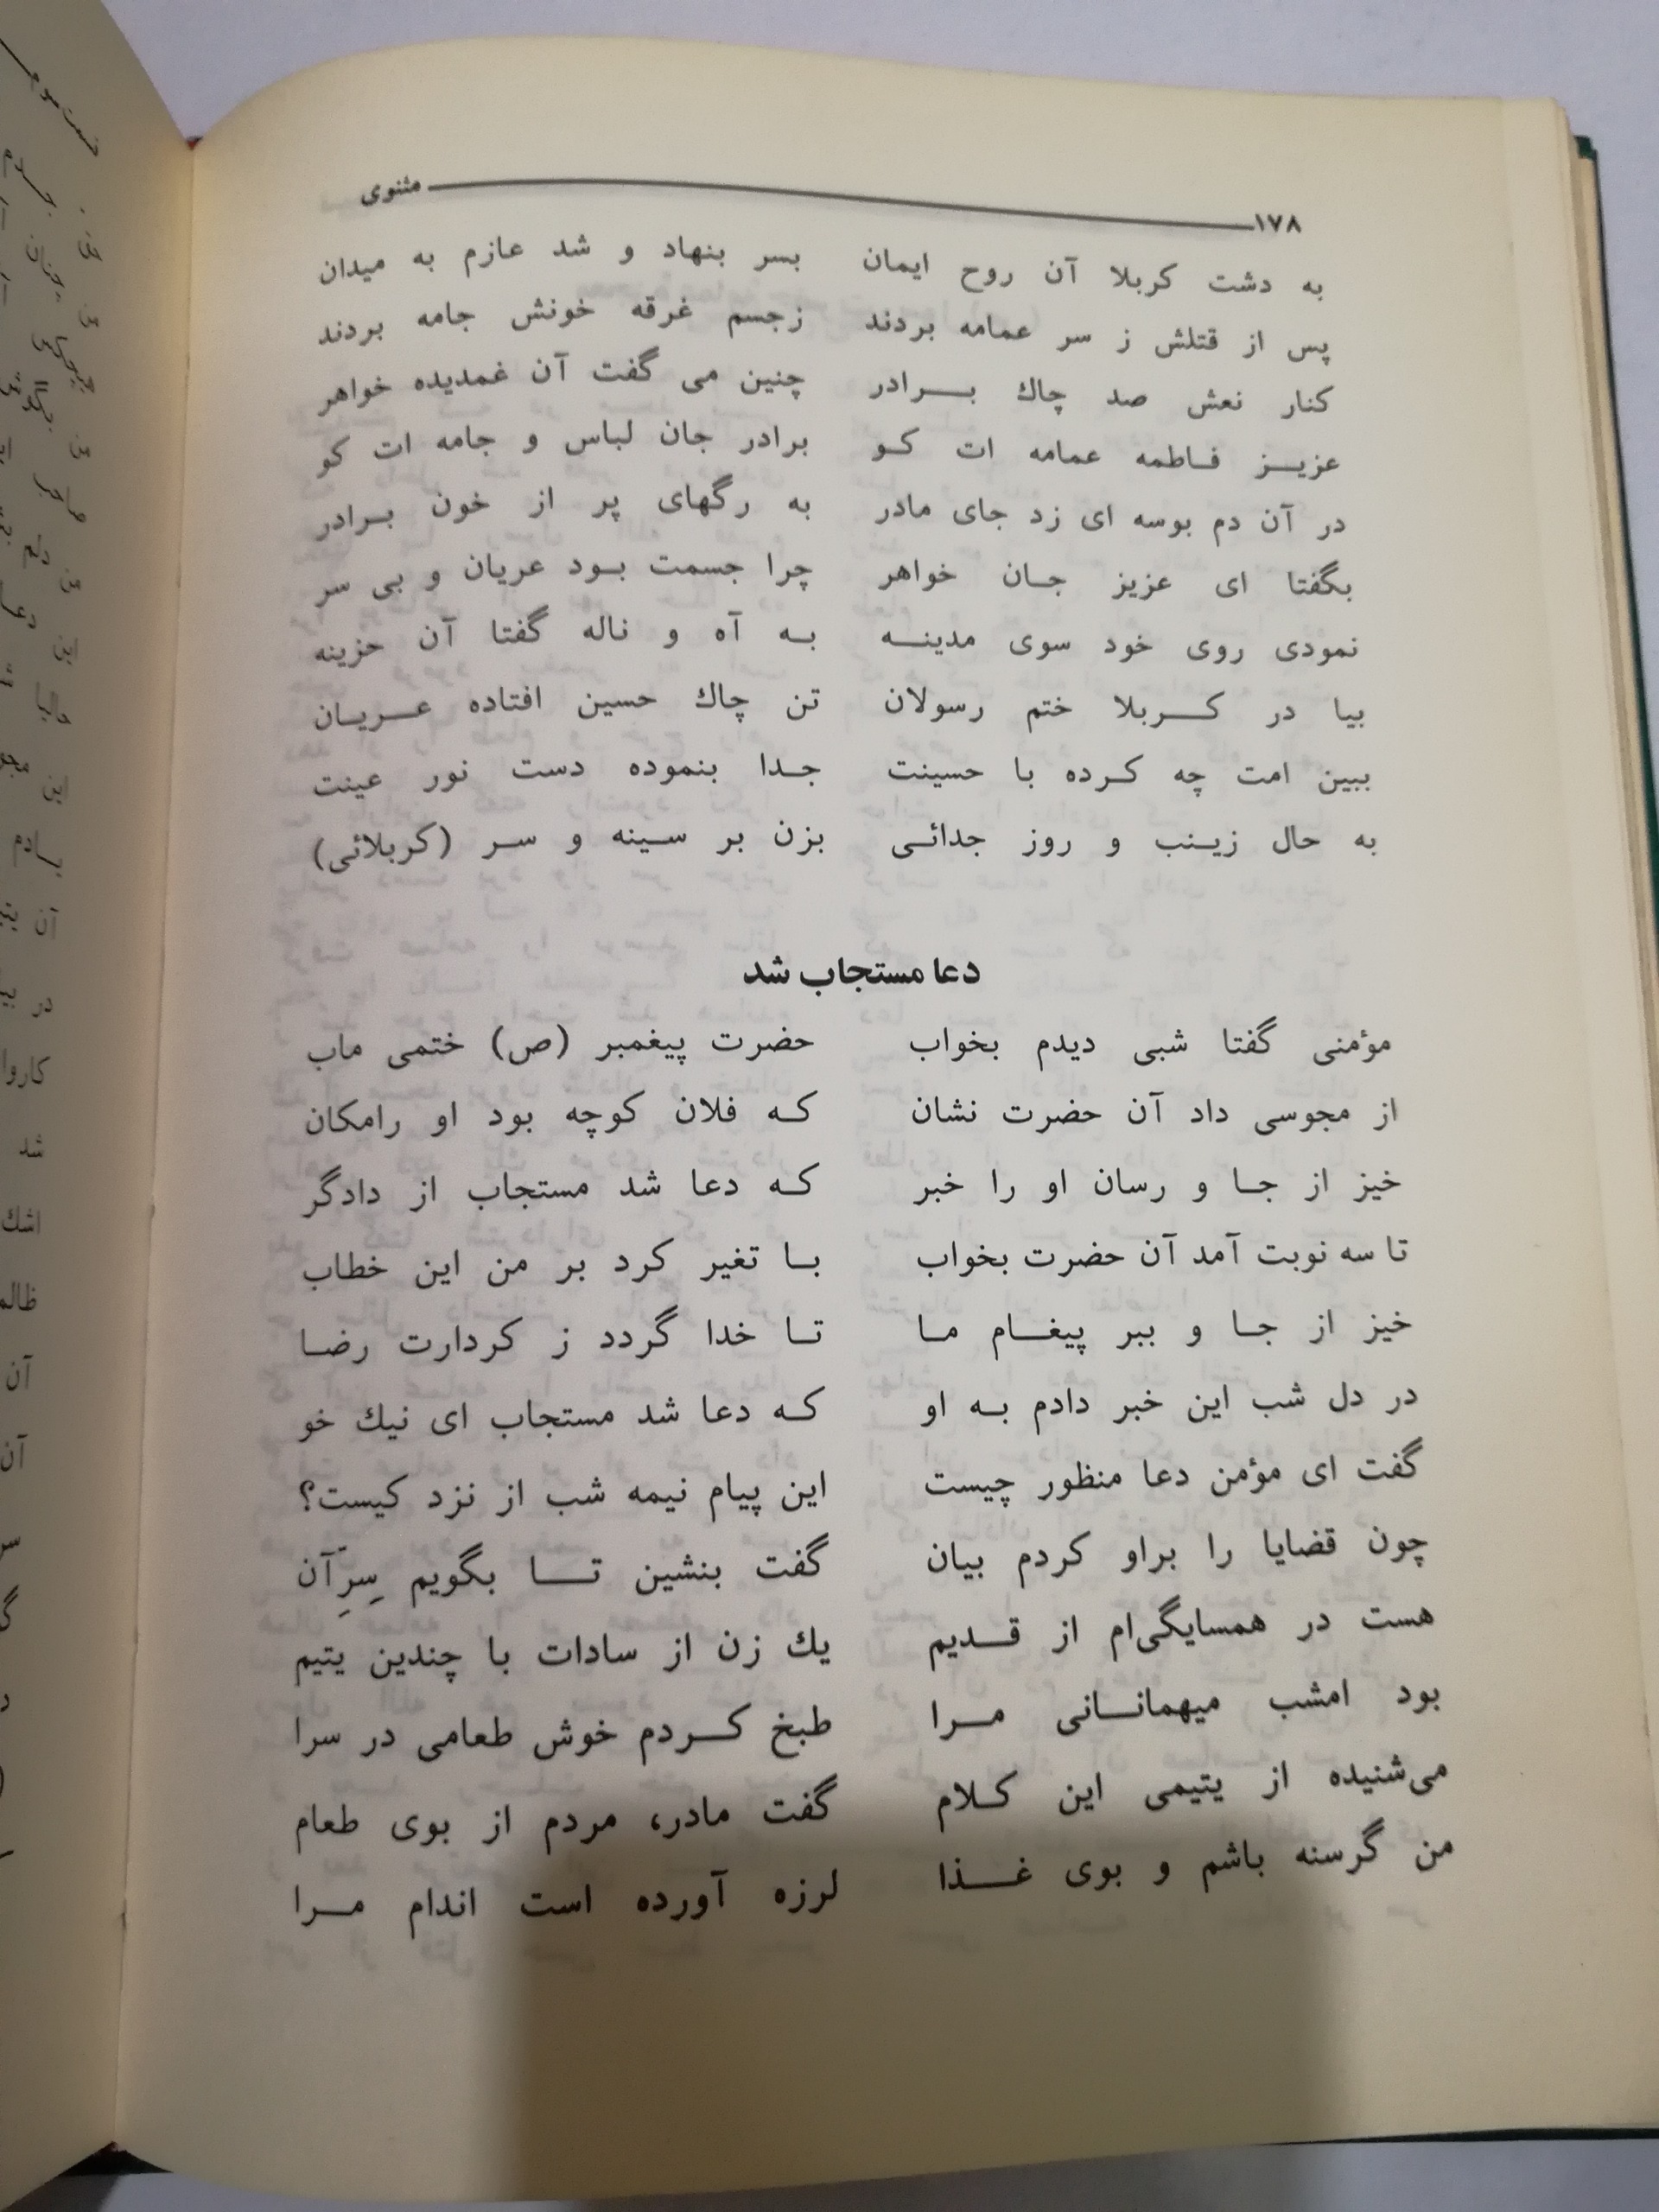 ۱۷۸ مثنوی
به دشت کربلا آن روح ایمان بسر بنهاد و شد عازم به میدان
پس از قتلش ز سر عمامه بردند زجسم غرقه خونش جامه بردند
کنار نعش صد چاك بـــرادر چنین می گفت آن غمدیده خواهر
عزیـــز فـاطمه عمامه ات کـو برادر جان لباس و جامه ات کو
در آن دم بوسه ای زد جای مادر به رگهای پر از خون بـرادر
بگفتا ای عزیز جـان خواهر چرا جسمت بـود عریان و بی سر
نمودی روی خود سوی مدینـــه بـه آه و ناله گفتا آن حزینه
بیا در کـــربلا ختم رسولان تن چاك حسین افتاده عـــریـان
ببین امت چه کـرده با حسینت جـدا بنموده دست نور عینت
به حال زیـنب و روز جدائـی بزن بر سـینه و سـر (کربلائی)
دعا مستجاب شد
مؤمنی گفتا شبی دیدم بخواب حضرت پیغمبر (ص) ختمی ماب
از مجوسی داد آن حضرت نشان کـه فلان کوچه بود او رامکان
خیز از جـا و رسان او را خبر کـه دعا شد مستجاب از دادگر
تا سه نوبت آمد آن حضرت بخواب بـا تغیر کرد بر من این خطاب
خیز از جـا و ببر پیغـــام مـا تـا خدا گردد ز کردارت رضـا
در دل شب این خبر دادم بـه او کـه دعا شد مستجاب ای نیك خو
گفت ای مؤمن دعا منظور چیست این پیام نیمه شب از نزد کیست؟
چون قضایا را براو کردم بیان گفت بنشین تـــا بگویم سِرِّ آن
هست در همسایگی‌ام از قـــدیم یك زن از سادات با چندین یتیم
بود امشب میهمانـــانی مـــرا طبخ کـــردم خوش طعامی در سرا
می‌شنیده از یتیمی این کـلام گفت مادر، مردم از بوی طعام
من گرسنه باشم و بوی غـــذا لرزه آورده است اندام مـــرا